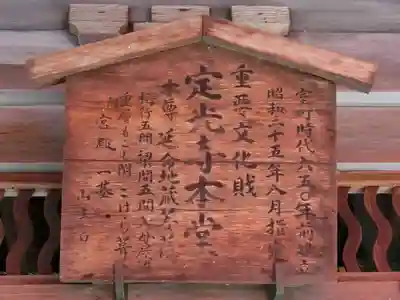 室町時代六五〇年前建立
昭和二十五年八月指定
重要文化財
定光寺本堂
本尊 延命地蔵菩薩
桁行五間 梁間五間 入母屋
重層もこし附 こけら葺
宮殿 一基